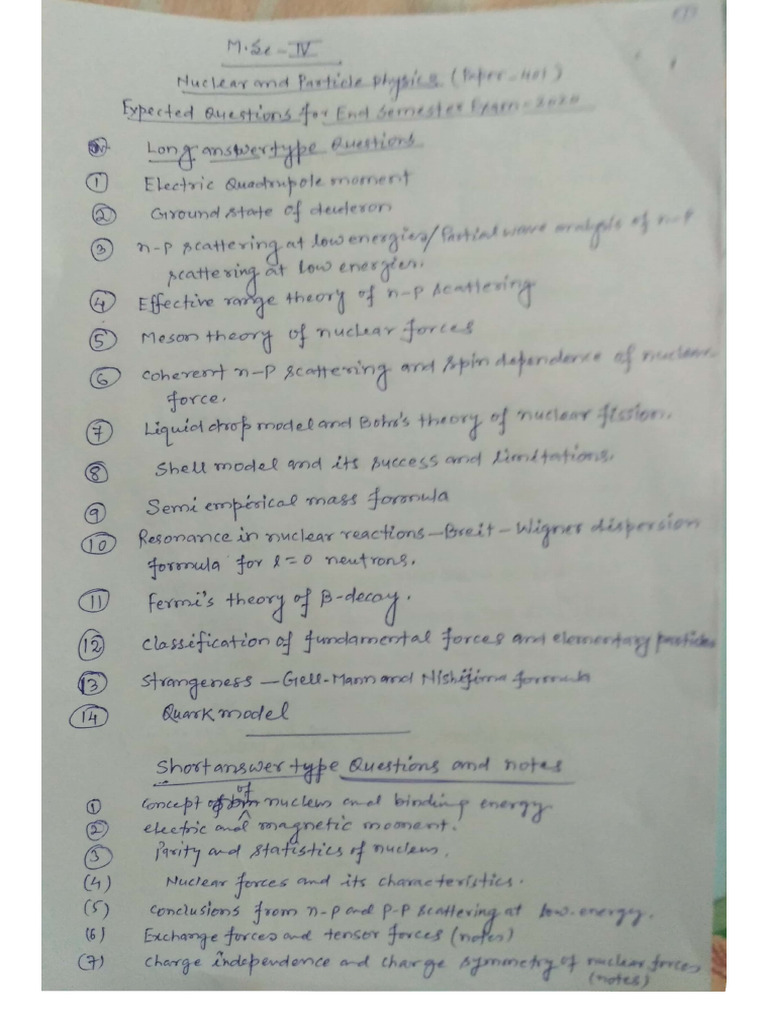 M.Sc - IV
Nuclear and Particle Physics (Paper-401)
Expected Questions for End Semester Exam-2020
Long answer type Questions
① Electric Quadrupole moment
② Ground state of deuteron
③ n-p scattering at low energies/Partial wave analysis of n-p
scattering at low energies.
④ Effective range theory of n-p scattering
⑤ Meson theory of nuclear forces
⑥ Coherent n-p scattering and spin dependence of nuclear
force.
⑦ Liquid drop model and Bohr's theory of nuclear fission.
⑧ Shell model and its success and limitations.
⑨ Semi empirical mass formula
⑩ Resonance in nuclear reactions – Breit – Wigner dispersion
formula for l=0 neutrons.
⑪ Fermi's theory of β-decay.
⑫ Classification of fundamental forces and elementary particles
⑬ Strangeness – Gell-Mann and Nishijima formula
⑭ Quark model
Short answer type Questions and notes
① Concept of nucleus and binding energy
② electric and magnetic moment.
③ Parity and statistics of nucleus.
(4) Nuclear forces and its characteristics.
(5) Conclusions from n-p and p-p scattering at low energy.
(6) Exchange forces and tensor forces (notes)
(7) Charge independence and charge symmetry of nuclear forces
(notes)